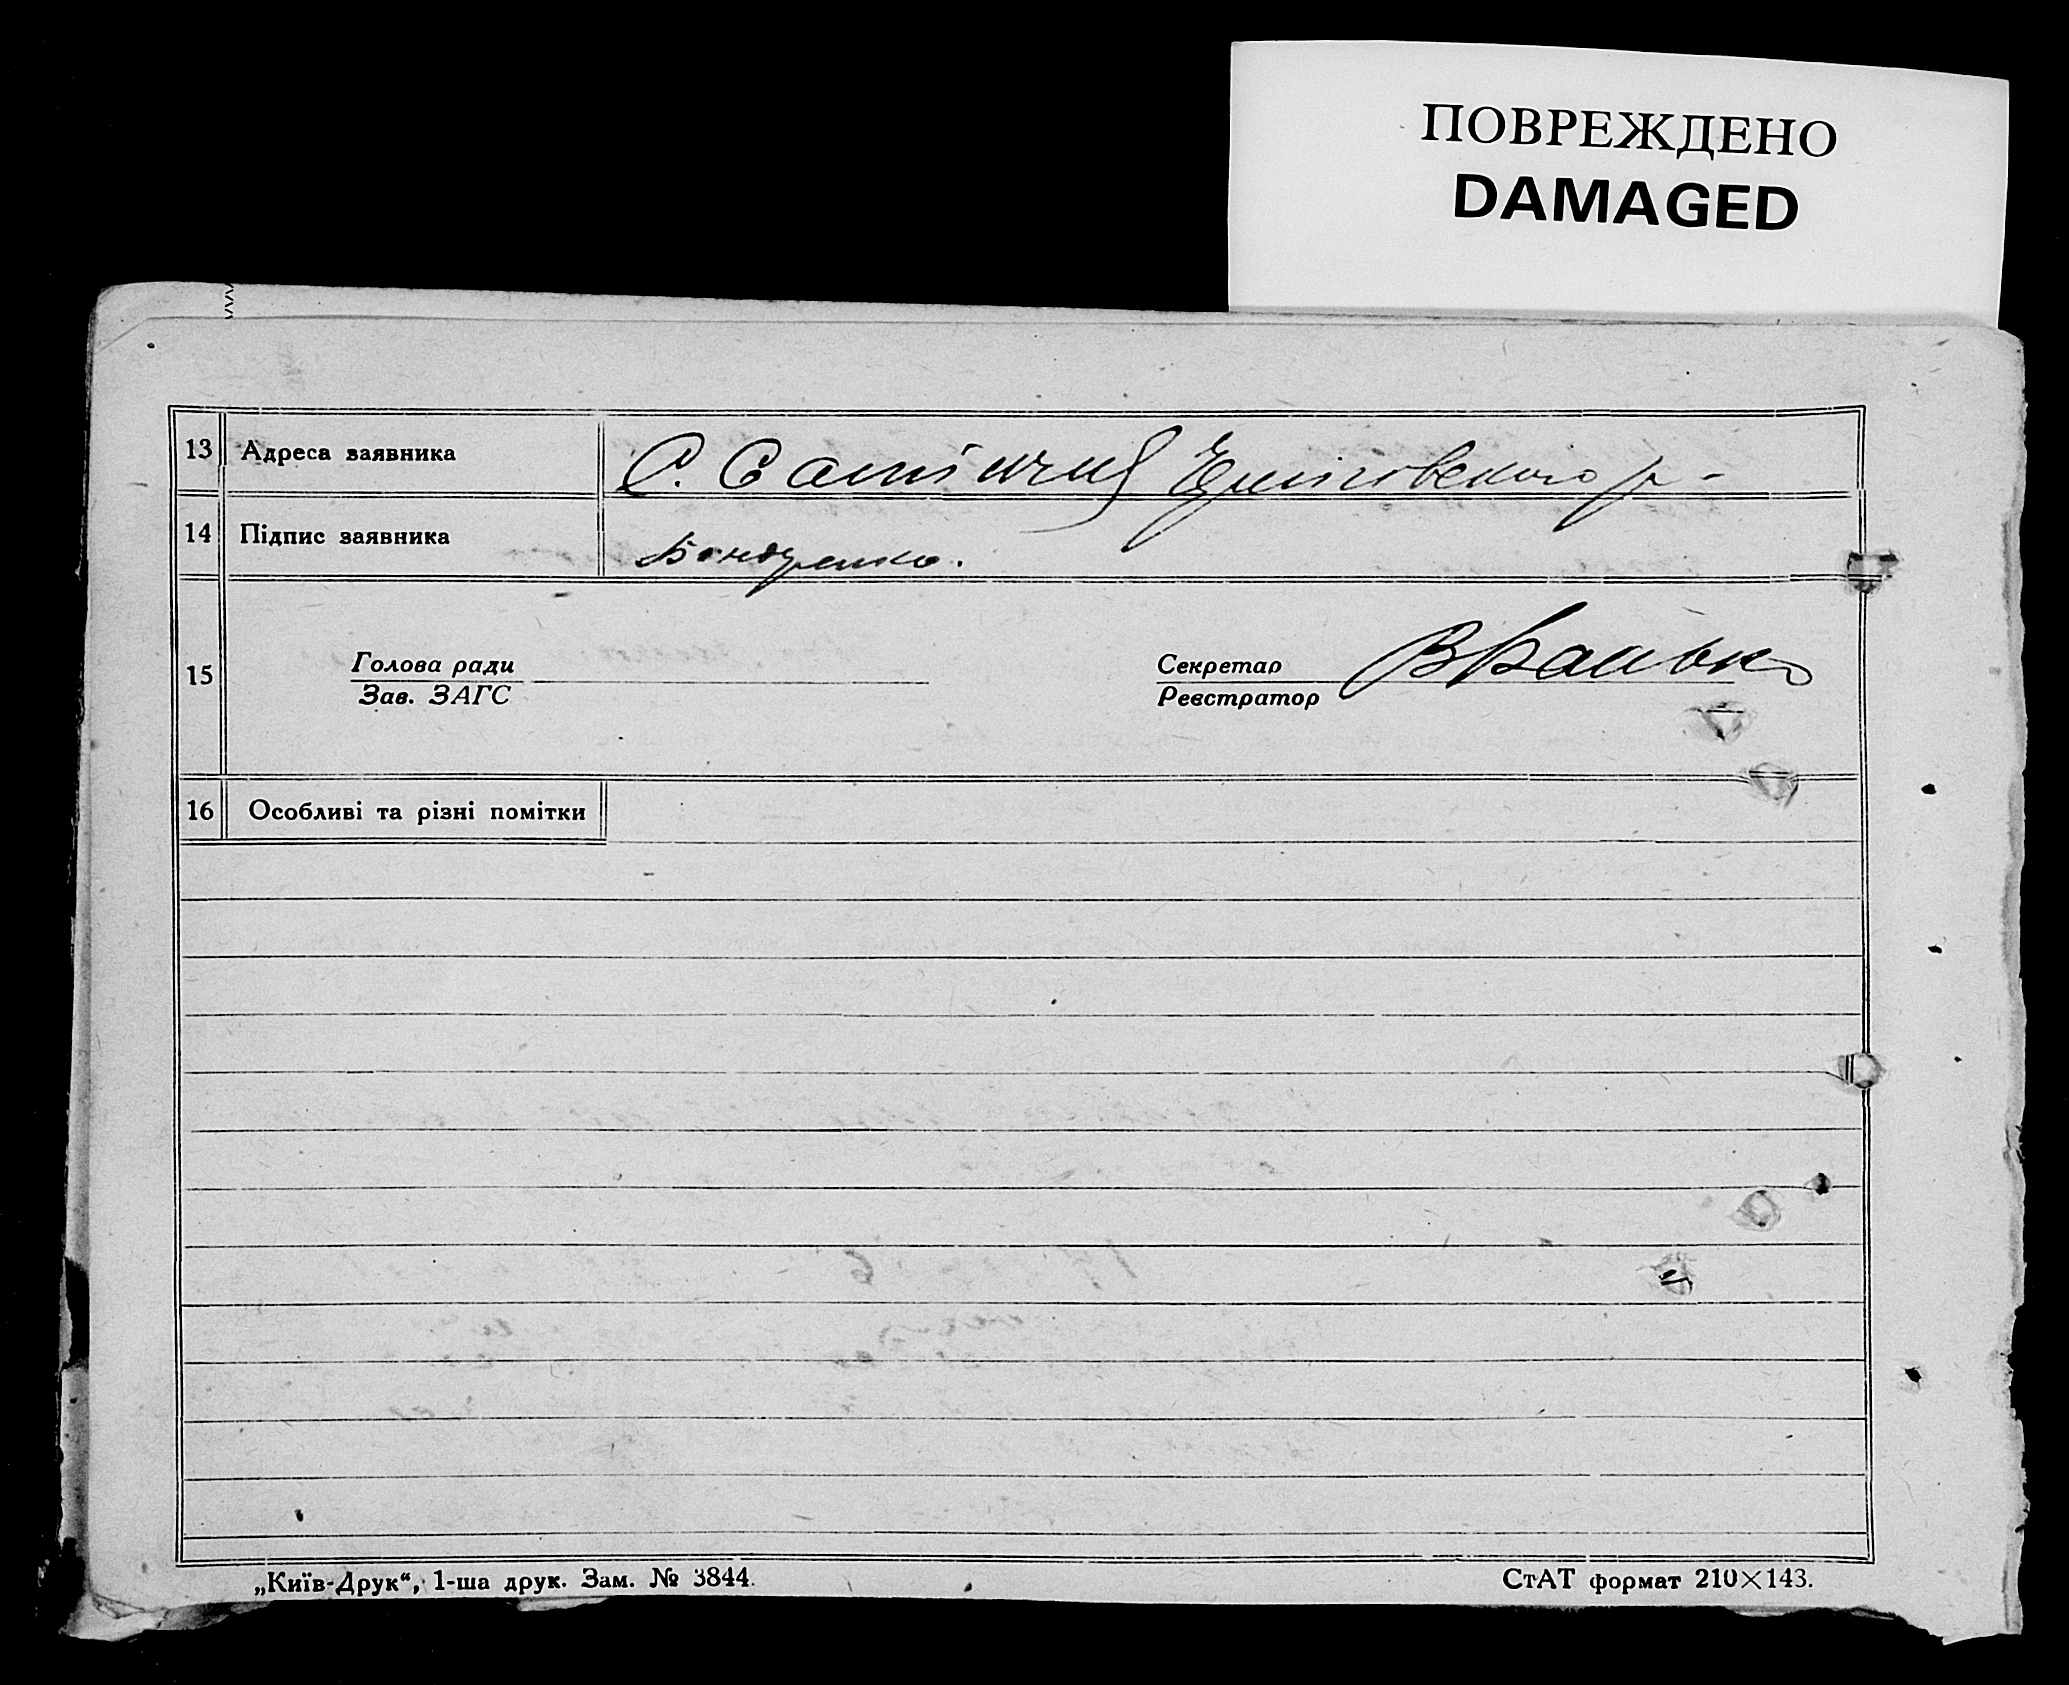 ПОВРЕЖДЕНО
DAMAGED
13 Адреса заявника С.
14 Підпис заявника Бондренко.
15 Голова ради Секретар
Зав. ЗАГС Реєстратор
16 Особливі та різні помітки
„Київ-Друк“, 1-ша друк. Зам. № 3844. СтАТ формат 210×143.